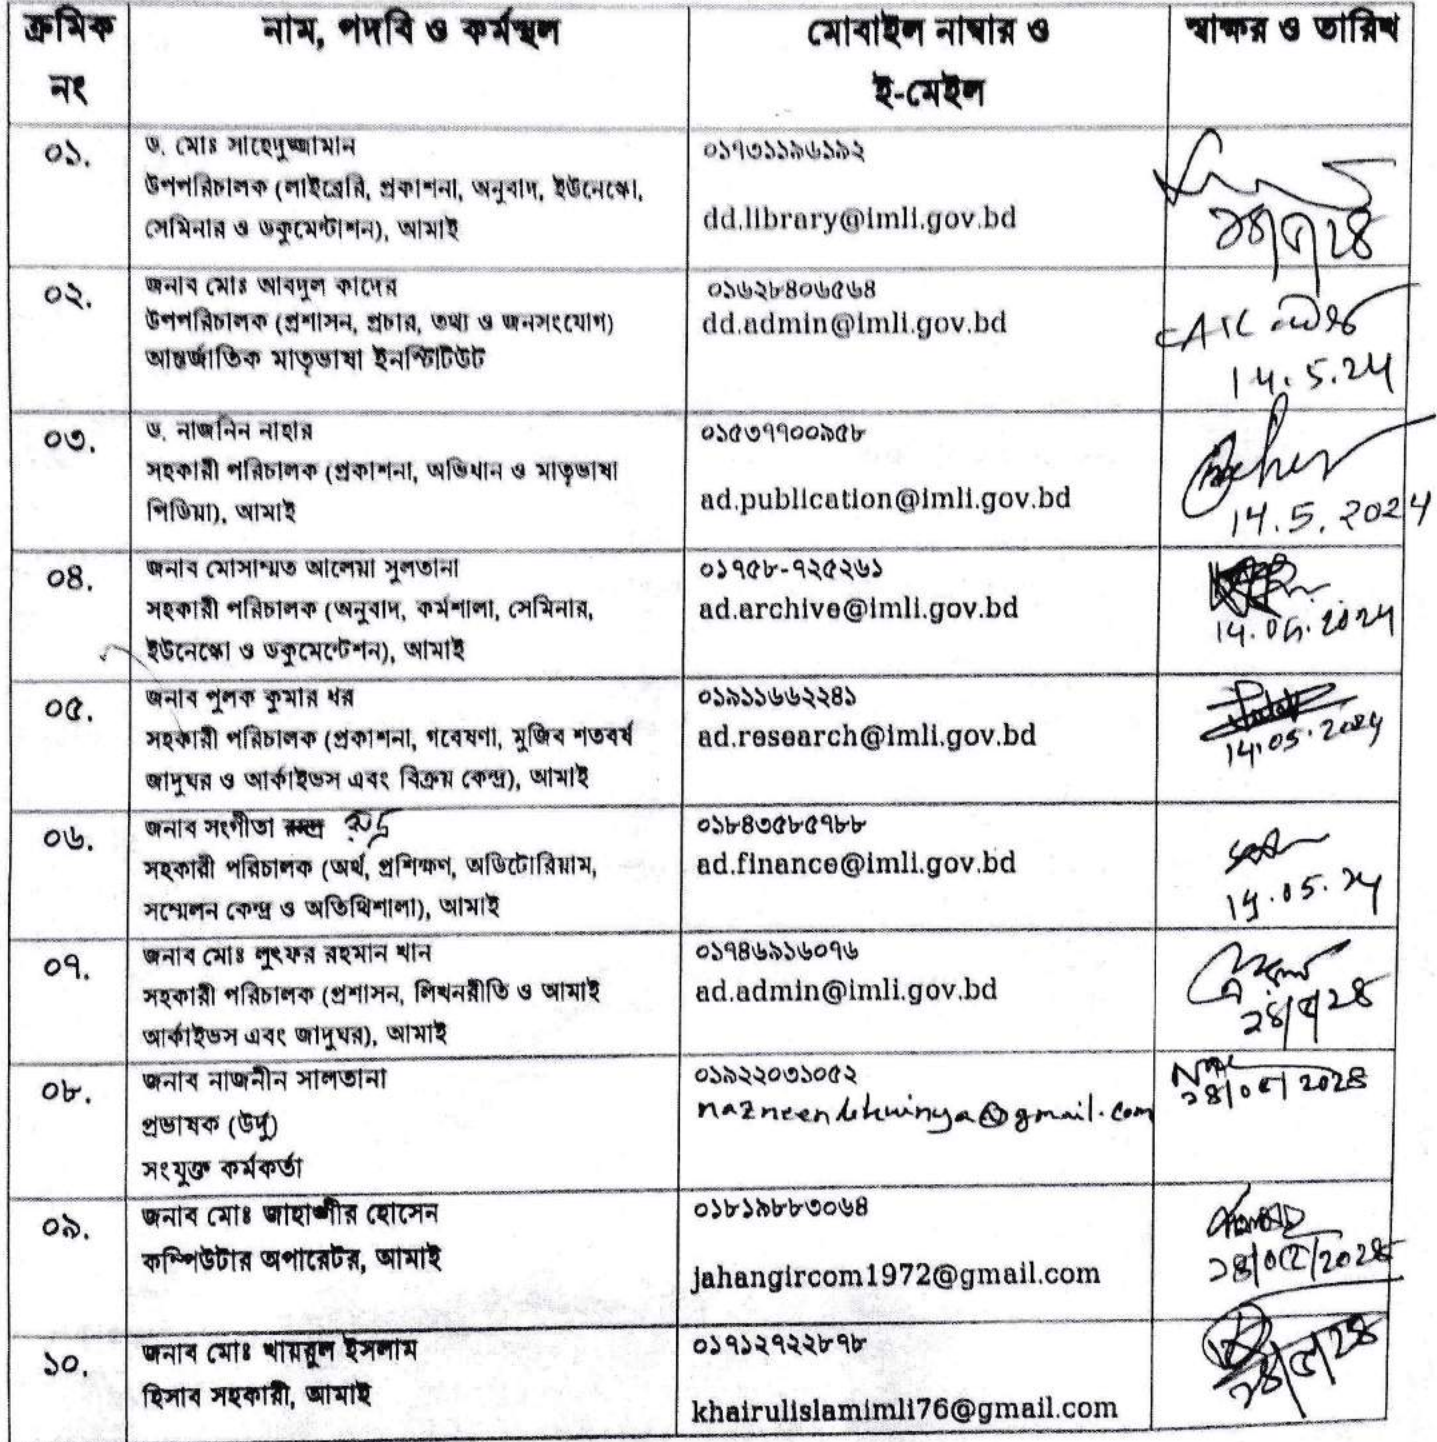 ক্রমিক নং
নাম, পদবি ও কর্মস্থল
মোবাইল নাম্বার ও ই-মেইল
স্বাক্ষর ও তারিখ
০১.
ড. মোঃ সাহেদুজ্জামান
উপপরিচালক (লাইব্রেরি, প্রকাশনা, অনুবাদ, ইউনেস্কো,
সেমিনার ও ডকুমেন্টাশন), আমাই
০১৭৩১১৯৬১৯২
dd.library@imli.gov.bd
২৪/৫/২৪
০২.
জনাব মোঃ আবদুল কাদের
উপপরিচালক (প্রশাসন, প্রচার, তথ্য ও জনসংযোগ)
আন্তর্জাতিক মাতৃভাষা ইনস্টিটিউট
০১৬২৮৪০৬৫৬৪
dd.admin@imli.gov.bd
14.5.24
০৩.
ড. নাজনিন নাহার
সহকারী পরিচালক (প্রকাশনা, অভিধান ও মাতৃভাষা
পিডিয়া), আমাই
০১৫৩৭৭০০৯৫৮
ad.publication@imli.gov.bd
14.5.2024
০৪.
জনাব মোসাম্মত আলেয়া সুলতানা
সহকারী পরিচালক (অনুবাদ, কর্মশালা, সেমিনার,
ইউনেস্কো ও ডকুমেন্টেশন), আমাই
০১৭৫৮-৭২৫২৬১
ad.archive@imli.gov.bd
14.05.2024
০৫.
জনাব পুলক কুমার ধর
সহকারী পরিচালক (প্রকাশনা, গবেষণা, মুজিব শতবর্ষ
জাদুঘর ও আর্কাইভস এবং বিক্রয় কেন্দ্র), আমাই
০১৯১১৬৬২২৪১
ad.research@imli.gov.bd
14.05.2024
০৬.
জনাব সংগীতা
সহকারী পরিচালক (অর্থ, প্রশিক্ষণ, অডিটোরিয়াম,
সম্মেলন কেন্দ্র ও অতিথিশালা), আমাই
০১৮৪৩৫৮৫৭৮৮
ad.finance@imli.gov.bd
14.05.24
০৭.
জনাব মোঃ লুৎফর রহমান খান
সহকারী পরিচালক (প্রশাসন, লিখনরীতি ও আমাই
আর্কাইভস এবং জাদুঘর), আমাই
০১৭৪৬৯১৬০৭৬
ad.admin@imli.gov.bd
০৮.
জনাব নাজনীন সালতানা
প্রভাষক (উর্দু)
সংযুক্ত কর্মকর্তা
০১৯২২০৩১০৫২
০৯.
জনাব মোঃ জাহাঙ্গীর হোসেন
কম্পিউটার অপারেটর, আমাই
০১৮১৯৮৮৩০৬৪
jahangircom1972@gmail.com
১০.
জনাব মোঃ খায়রুল ইসলাম
হিসাব সহকারী, আমাই
০১৭১২৭২২৮৭৮
khairulislamimli76@gmail.com